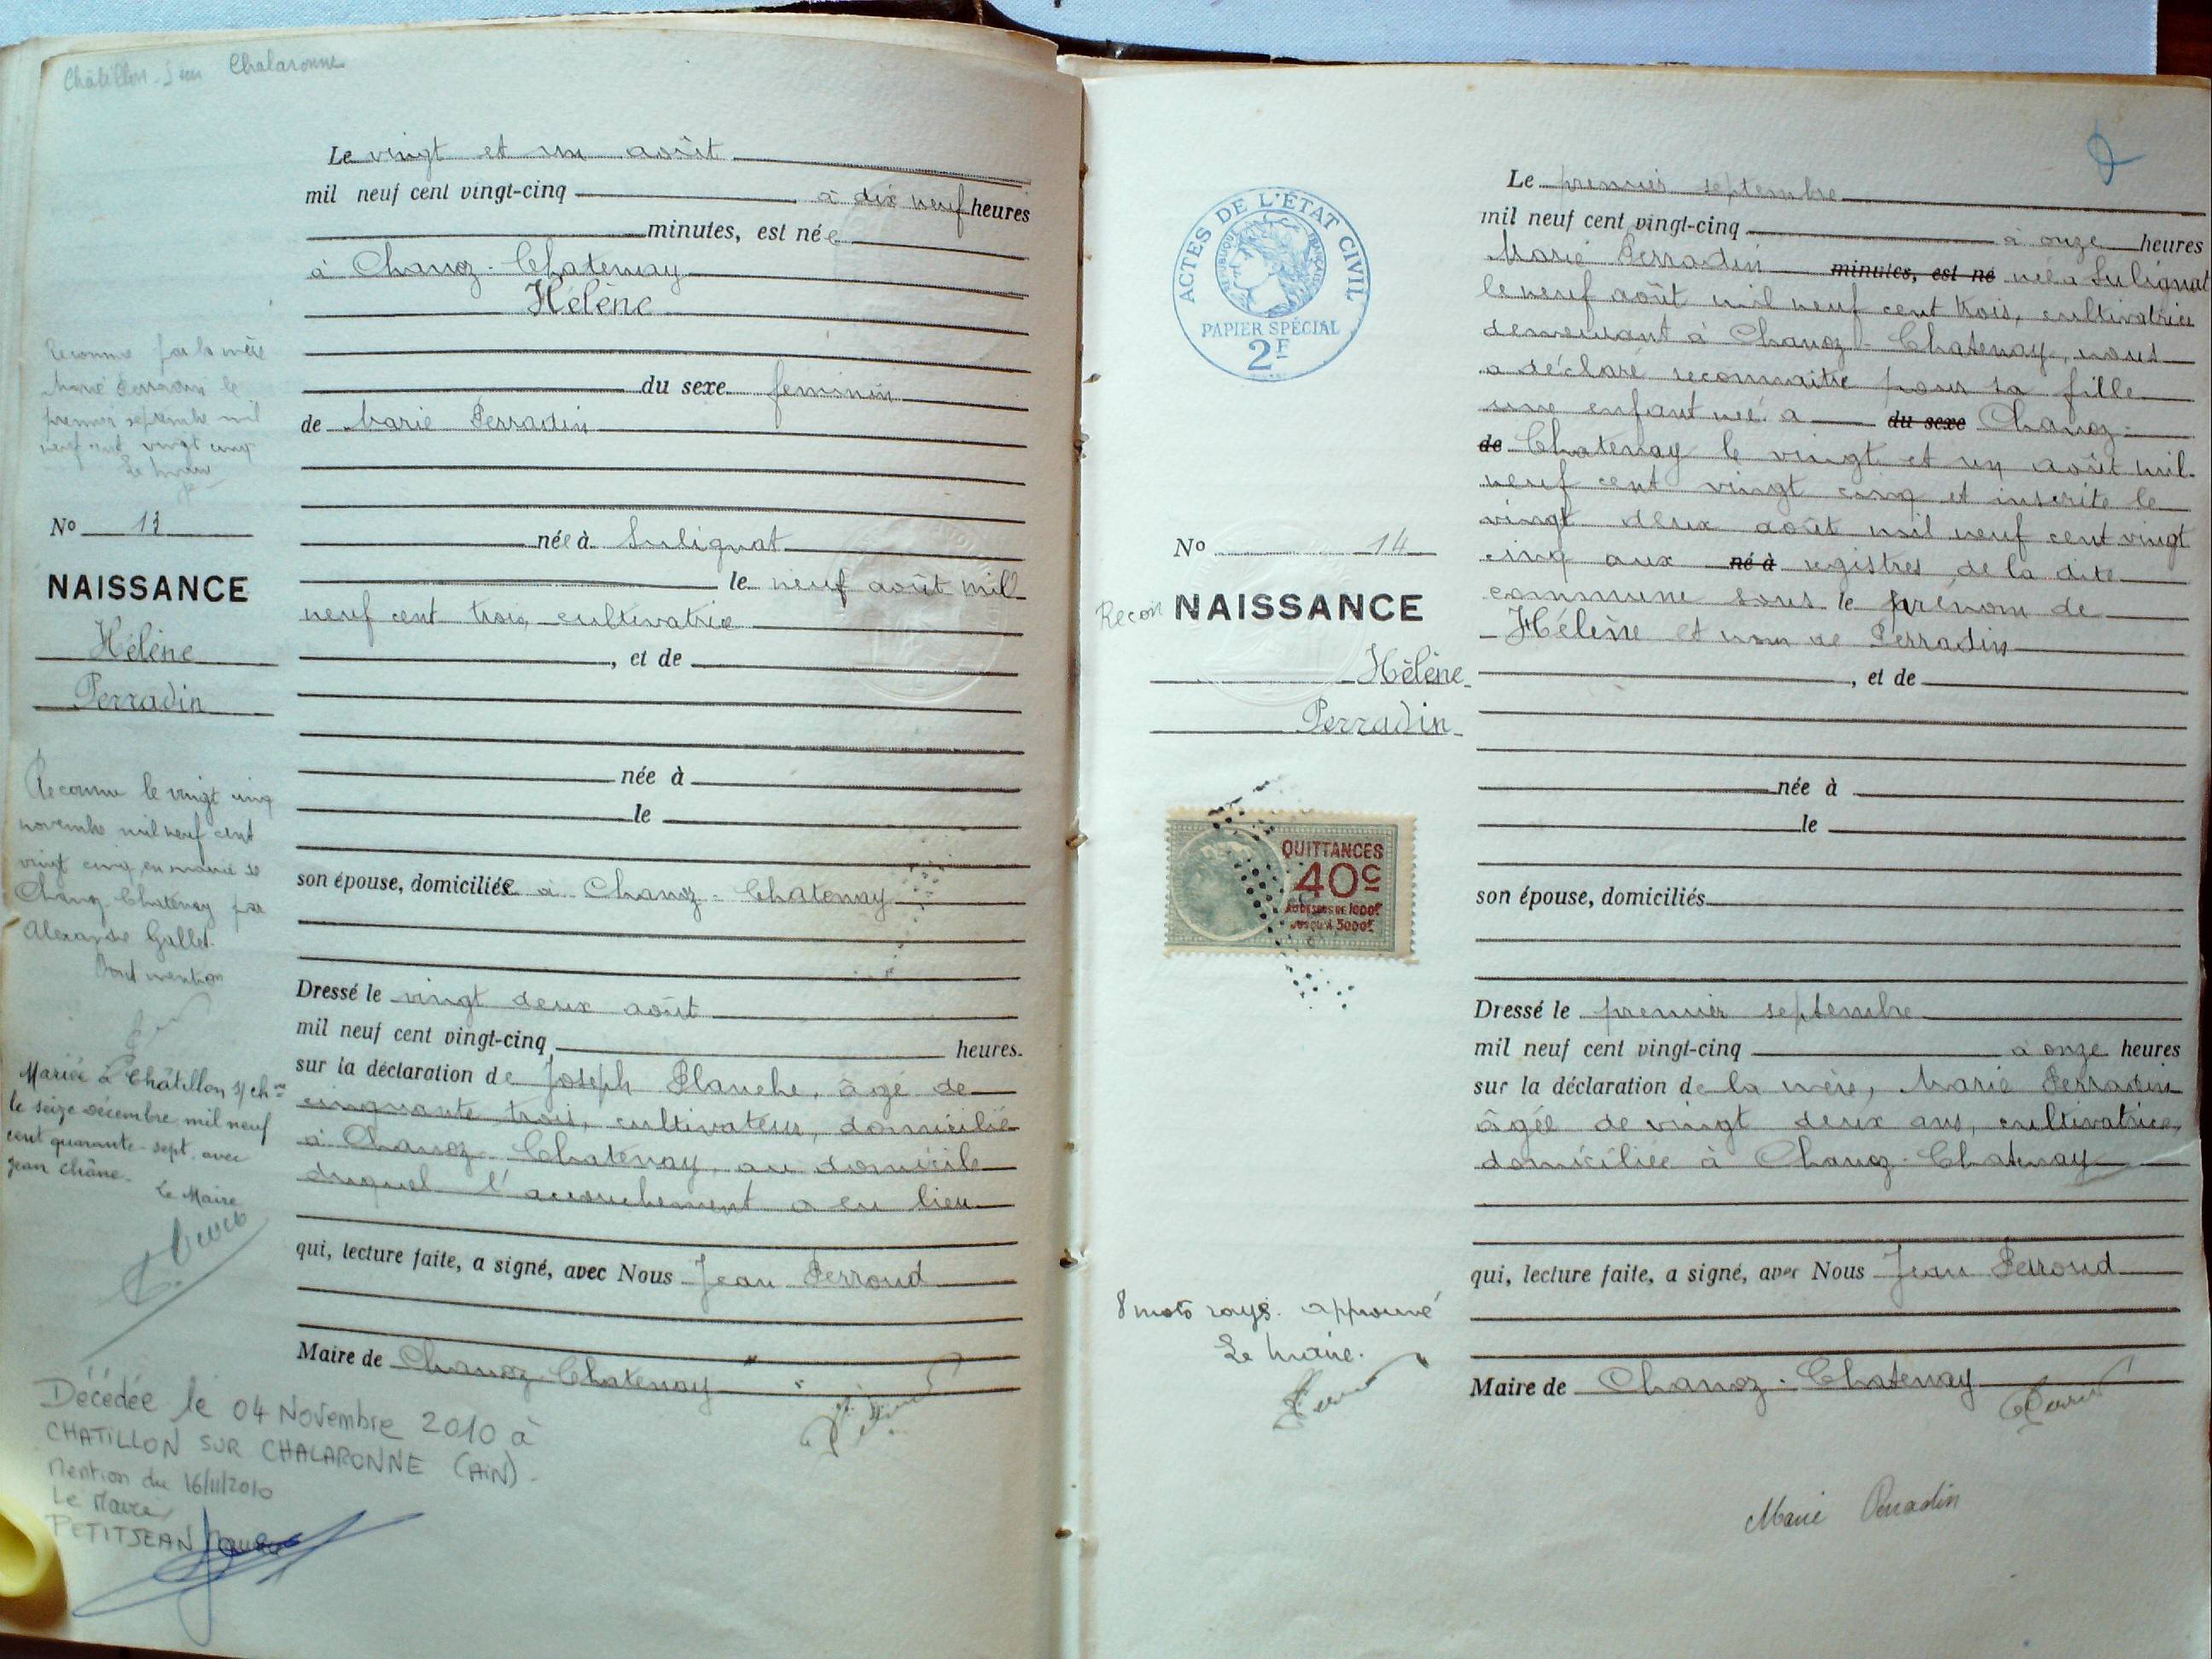 Châtillon-sur Chalaronne
Le vingt et un août
mil neuf cent vingt-cinq à dix neuf heures
minutes, est née
à Chanoz-Chatenay
Hélène
du sexe feminin
de Marie Perradin
née à Sulignat
le neuf août mil
neuf cent trois, cultivatrice
, et de
née à
le
son épouse, domiciliée à Chanoz-Chatenay
Dressé le vingt deux août
mil neuf cent vingt-cinq heures.
sur la déclaration de Joseph Planche, âgé de
cinquante trois, cultivateur, domicilié
à Chanoz-Chatenay, au domicile
duquel l'accouchement a eu lieu
qui, lecture faite, a signé, avec Nous Jean Perroud
Maire de Chanoz-Chatenay
Reconnue par la mère
Marie Perradin le
premier septembre mil
neuf cent vingt cinq
Le Maire
No 13
NAISSANCE
Hélène
Perradin
Reconnue le vingt cinq
novembre mil neuf cent
vingt cinq en mairie de
Chanoz-Chatenay par
Alexandre Gallet.
Dont mention
Mariée à Châtillon s/ chne
le seize décembre mil neuf
cent quarante-sept avec
Jean Châne.
Le Maire
Décédée le 04 Novembre 2010 à
CHATILLON SUR CHALARONNE (AIN).
Mention du 16/11/2010
Le Maire
PETITJEAN
ACTES DE L'ÉTAT CIVIL
RÉPUBLIQUE FRANÇAISE
PAPIER SPÉCIAL
2F
No 14
Recon NAISSANCE
Hélène
Perradin
QUITTANCES
40c
AU DESSUS DE 1000f
JUSQU'À 3000f
8 mots rayés approuvé
Le Maire.
Le premier septembre
mil neuf cent vingt-cinq à onze heures
Marie Perradin minutes, est né née à Sulignat
le neuf août mil neuf cent trois, cultivatrice
demeurant à Chanoz-Chatenay, nous
a déclaré reconnaitre pour sa fille
une enfant née à du sexe Chanoz-
de Chatenay le vingt et un août mil
neuf cent vingt cinq et inscrite le
vingt deux août mil neuf cent vingt
cinq aux né à registres de la dite
commune sous le prénom de
Hélène et nom de Perradin
, et de
née à
le
son épouse, domiciliés
Dressé le premier septembre
mil neuf cent vingt-cinq à onze heures
sur la déclaration de la mère, Marie Perradin
âgée de vingt deux ans, cultivatrice,
domiciliée à Chanoz-Chatenay
qui, lecture faite, a signé, avec Nous Jean Perroud
Maire de Chanoz-Chatenay
Marie Perradin